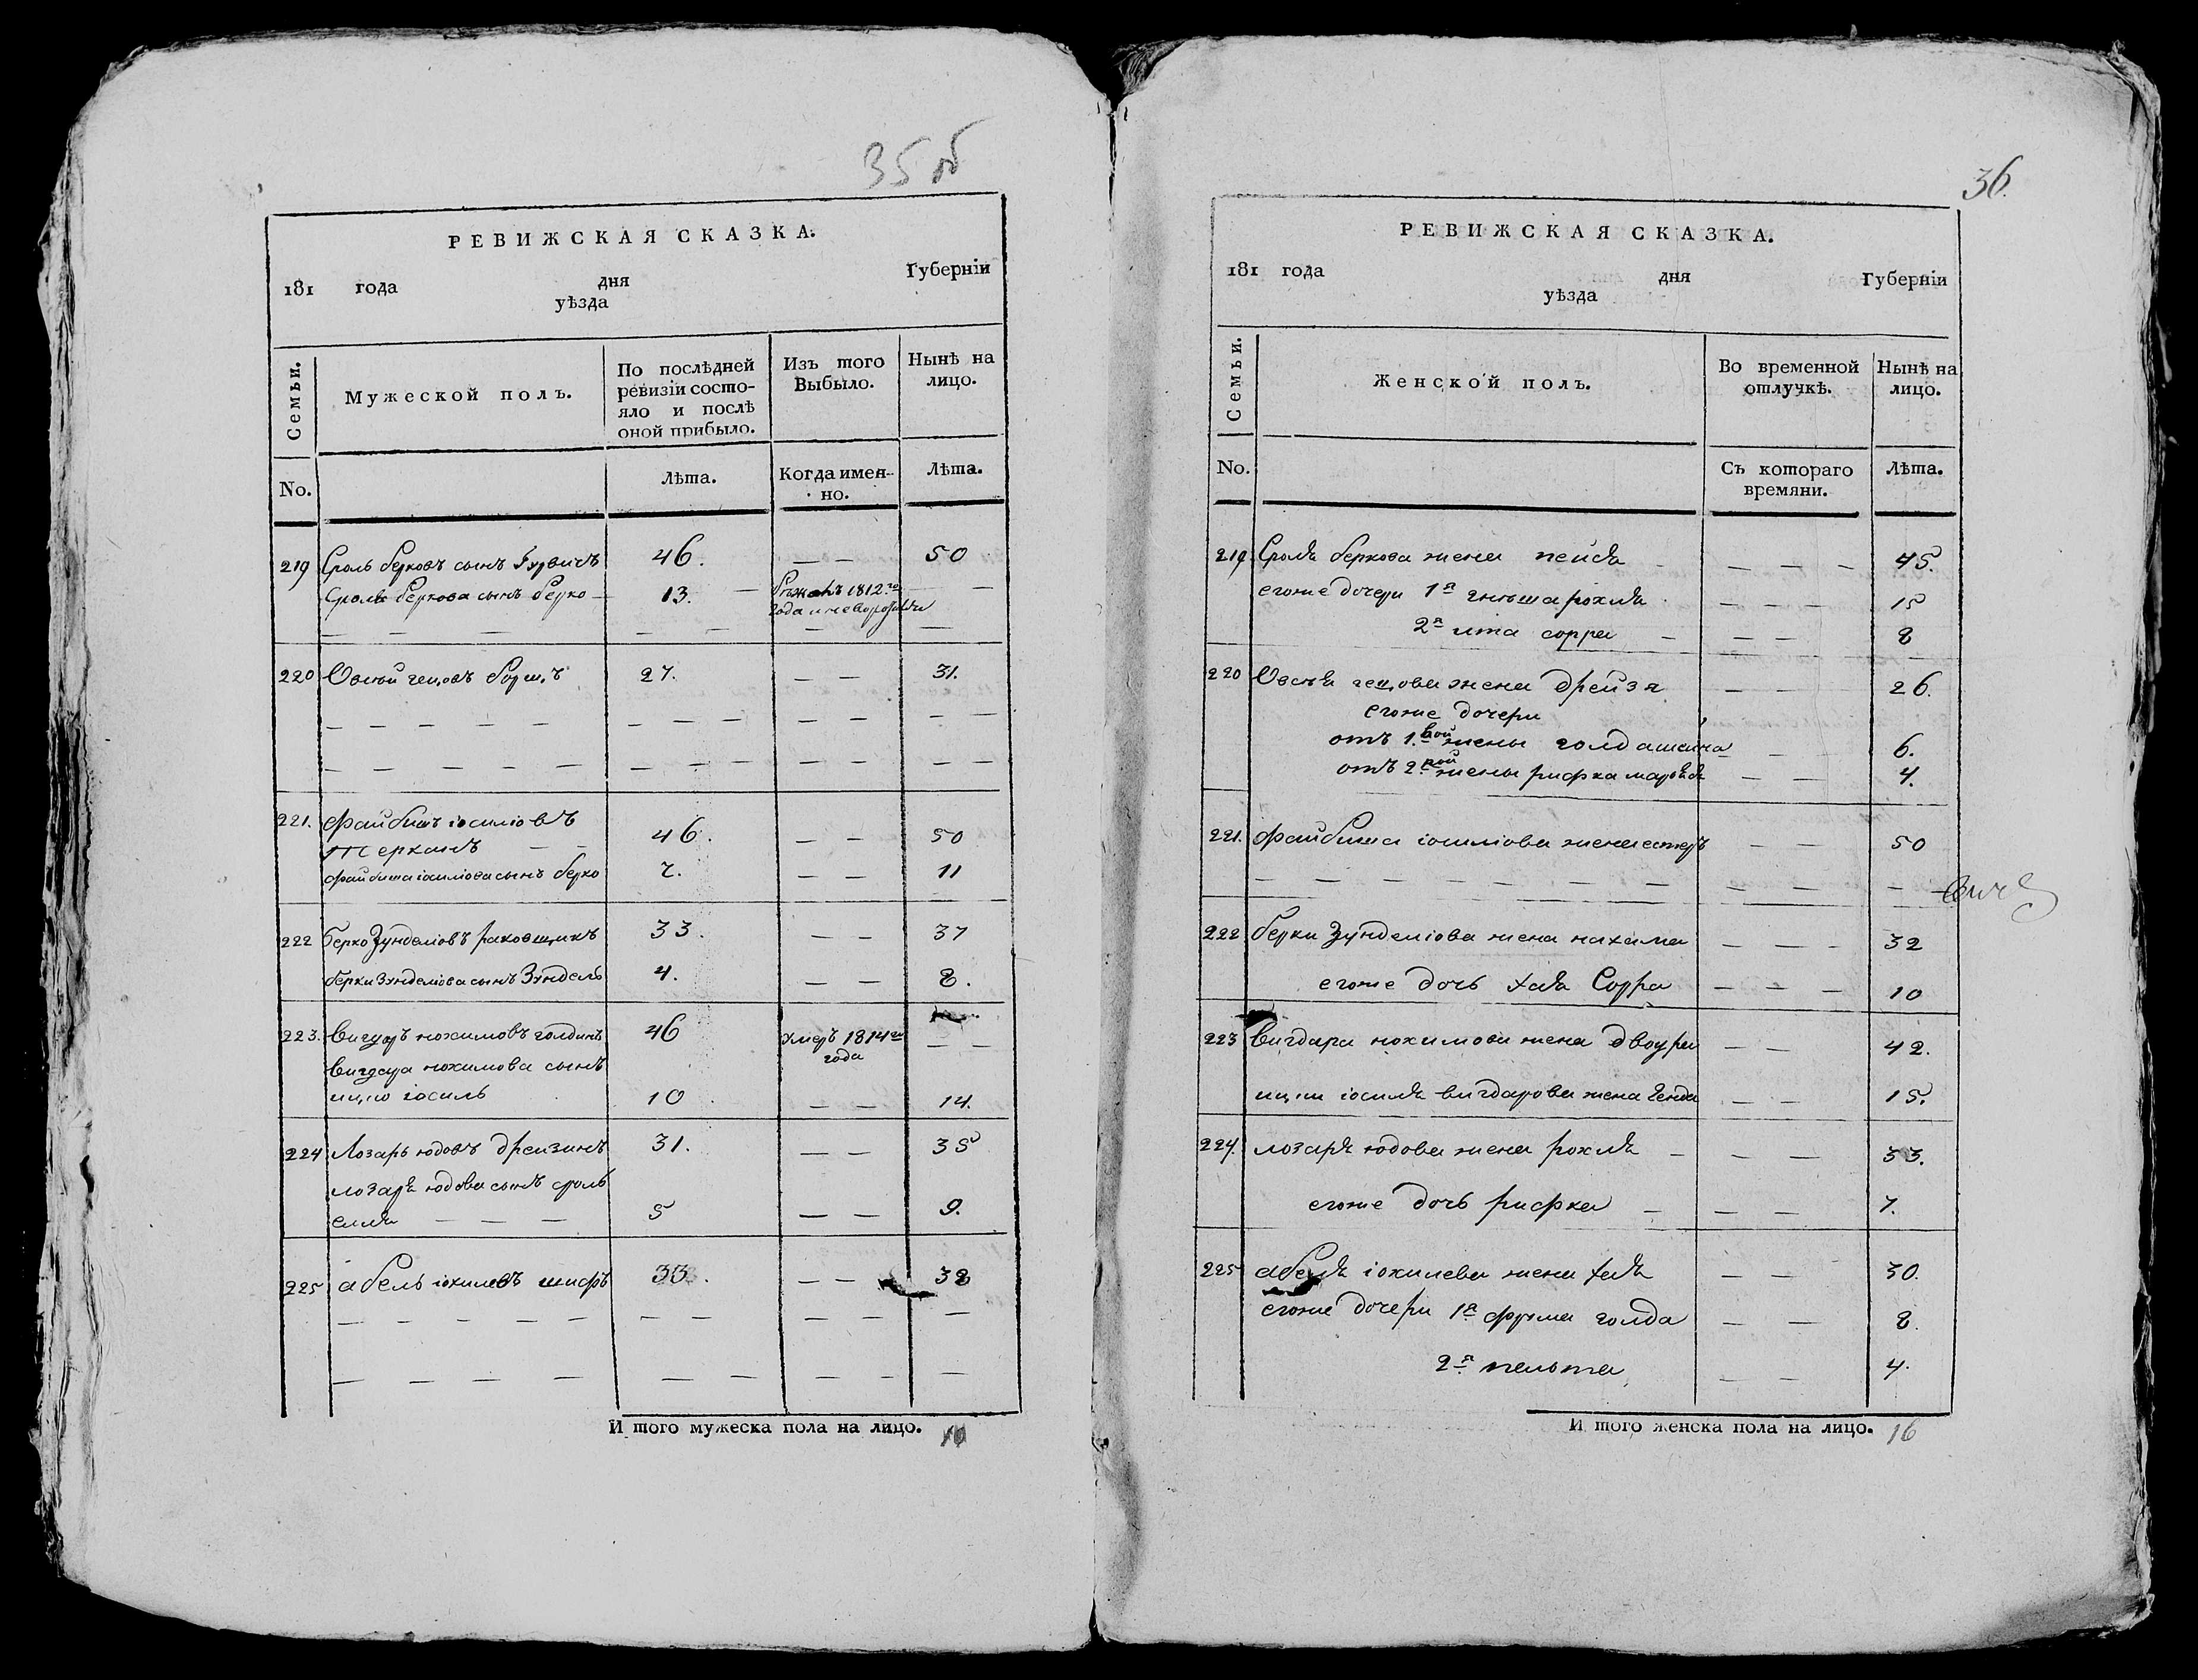 35 об
РЕВИЖСКАЯ СКАЗКА.
181 года дня Губерніи
уѣзда
Семьи.
Мужеской полъ.
По послѣдней ревизіи состо-
яло и послѣ
оной прибыло.
Изъ того
Выбыло.
Нынѣ на
лицо.
No.
Лѣта.
Когда имен-
но.
Лѣта.
219 Сроль берковъ сынъ Гурвичъ 46. — — 50
Сроля беркова сынъ берко — 13. — бѣжалъ 1812го —
года —
220 Овсѣй гецовъ 27. — — 31.
221. Файбишъ іосиліовъ
46. — — 50
файбиша іосиліова сынъ берко 7. — — 11
222 берко Зунделіовъ раковщикъ 33. — — 37
берки Зунделіова сынъ Зундель 4. — — 8.
223. вигдоръ нохимовъ голдинъ 46 умеръ 1814го — —
года
вигдора нохимова сынъ
ицко іосиль 10 — — 14.
224 Лозарь юдовъ дрейзинъ 31. — — 35
лозаря юдова сынъ сроль
— — — 5 — — 9.
225 абель іохилевъ шифъ 33. — — 38
И того мужеска пола на лицо. 10
36.
РЕВИЖСКАЯ СКАЗКА.
181 года дня Губерніи
уѣзда
Семьи.
Женской полъ.
Во временной
отлучкѣ.
Нынѣ на
лицо.
No.
Съ котораго
времяни.
Лѣта.
219. Сроля беркова жена пейся — — — 45.
егоже дочери 1я рохля — — — 15
2я ита сорра — — — 8
220 Овсѣя гецова жена дрейзя — — 26.
егоже дочери
отъ 1вой жены голда — 6.
отъ 2рой жены рифка — — 4.
221. файбиша іосиліова жена естеръ — — 50
222 берки Зунделіова жена нахама — — — 32
егоже дочь хая Сорра — — — 10
223 вигдора нохимова жена двоура — — 42.
ицки іосиля вигдорова жена генда — — 15.
224. лозаря юдова жена рохля — — — 33.
егоже дочь рифка — — — 7.
225 абеля іохилева жена хая — — 30.
егоже дочери 1я фрума голда — — 8.
2я — — 4.
И того женска пола на лицо. 16